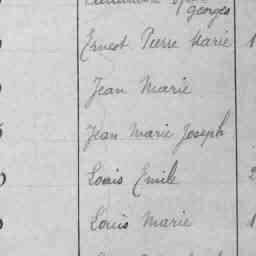 Georges
Ernest Pierre Marie 1
Jean Marie
Jean Marie Joseph
Louis Emile 2
Louis Marie 1